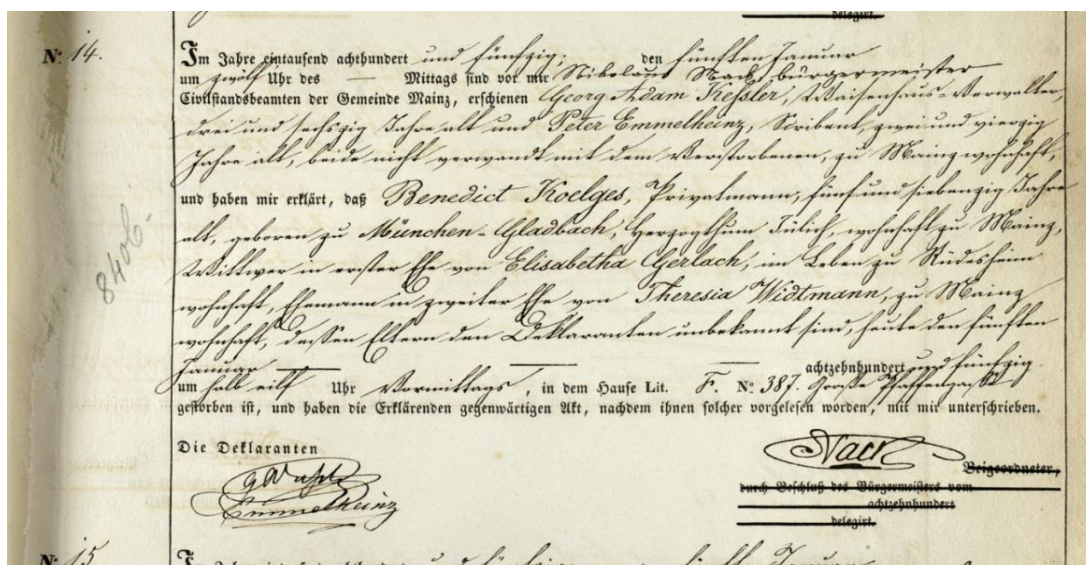 delegirt.
Nº 14.
Im Jahre eintausend achthundert und fünfzig, den fünften Januar
um zwölf Uhr des — Mittags sind vor mir Nikolaus Nack, bürgermeister
Civilstandsbeamten der Gemeinde Mainz, erschienen Georg Adam Keßler, Waisenhaus-Verwalter,
drei und sechszig Jahre alt und Peter Emmelheinz, Scribent, zwei und vierzig
Jahre alt, beide nicht verwandt mit dem Verstorbenen, zu Mainz wohnhaft,
und haben mir erklärt, daß Benedict Koelges, Privatmann, fünf und siebenzig Jahre
alt, geboren zu München-Gladbach, Herzogthum Jülich, wohnhaft zu Mainz,
Wittwer in erster Ehe von Elisabetha Gerlach, im Leben zu Rüdesheim
wohnhaft, Ehemann in zweiter Ehe von Theresia Widtmann, zu Mainz
wohnhaft, dessen Eltern den Deklaranten unbekannt sind, heute den fünften
Januar — — — achtzehnhundert und fünfzig
um halb eilf Uhr Vormittags, in dem Hause Lit. F. Nº 387. Große Pfaffengasse
gestorben ist, und haben die Erklärenden gegenwärtigen Akt, nachdem ihnen solcher vorgelesen worden, mit mir unterschrieben.
8406.
Die Deklaranten
Emmelheinz
Nack
Beigeordneter,
durch Beschluß des Bürgermeisters vom
achtzehnhundert
delegirt.
Nº 15
Im Jahre eintausend achthundert und fünfzig den fünften Januar